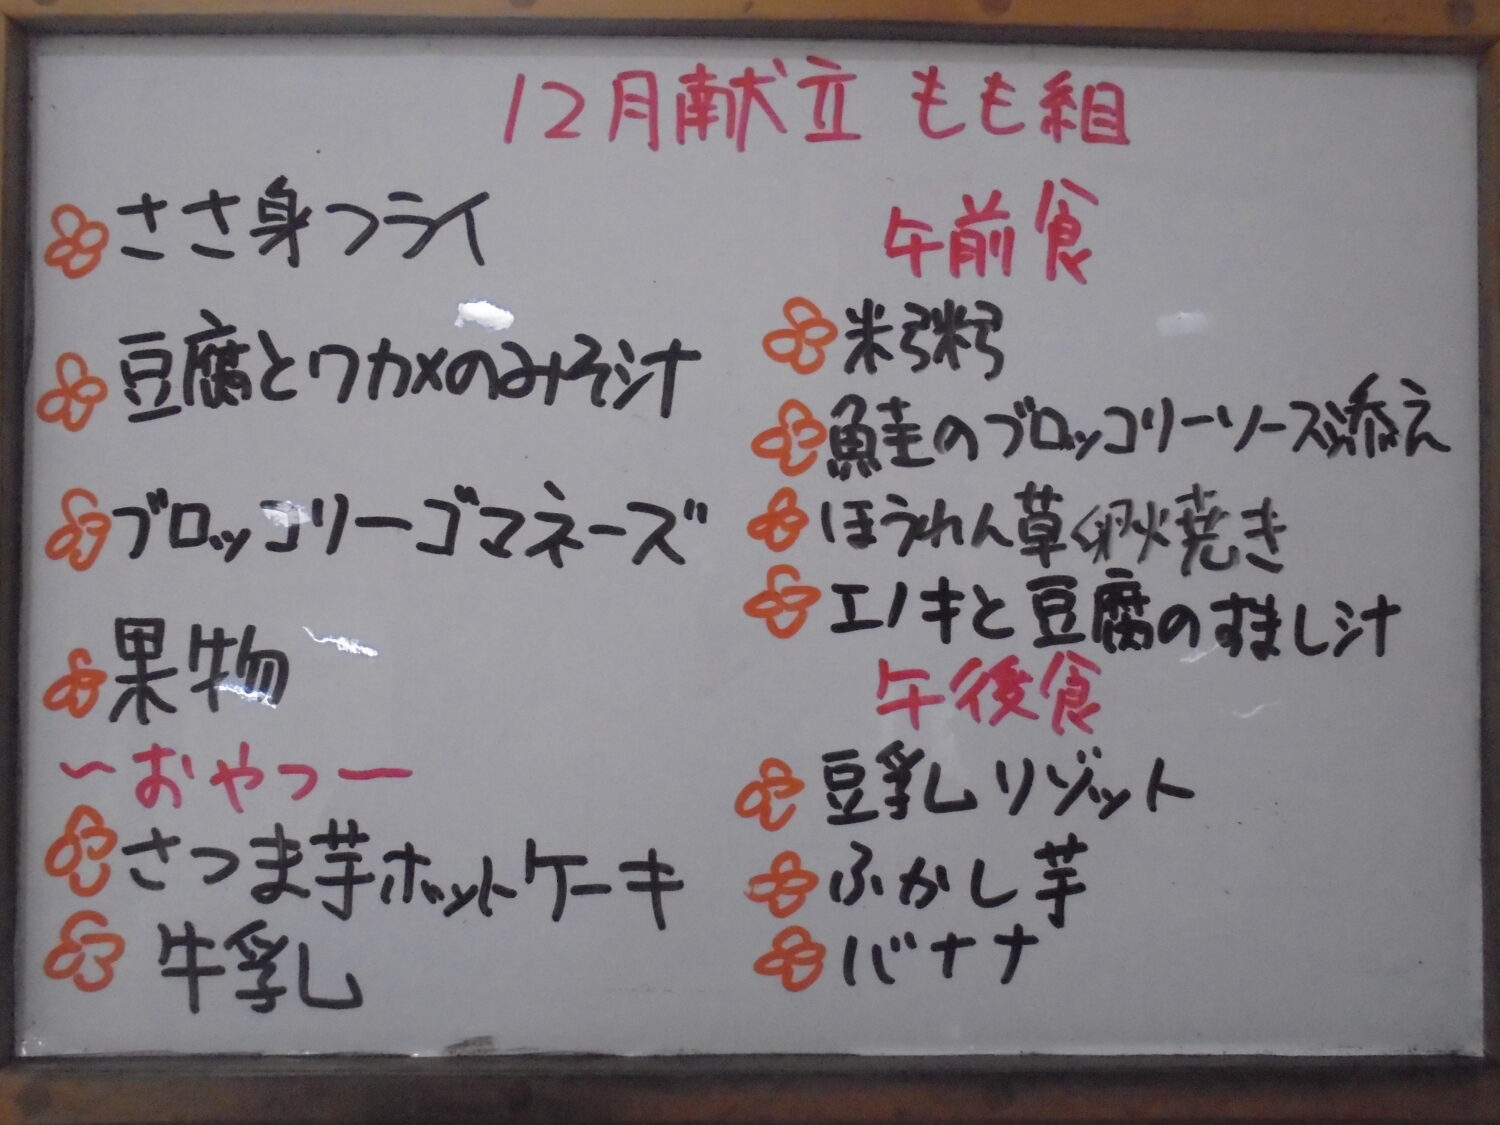 12月献立 もも組
ささ身フライ
豆腐とワカメのみそ汁
ブロッコリーゴマネーズ
果物
〜おやつー
さつま芋ホットケーキ
牛乳
午前食
米粥
鮭のブロッコリーソース添え
ほうれん草卵焼き
エノキと豆腐のすまし汁
午後食
豆乳リゾット
ふかし芋
バナナ